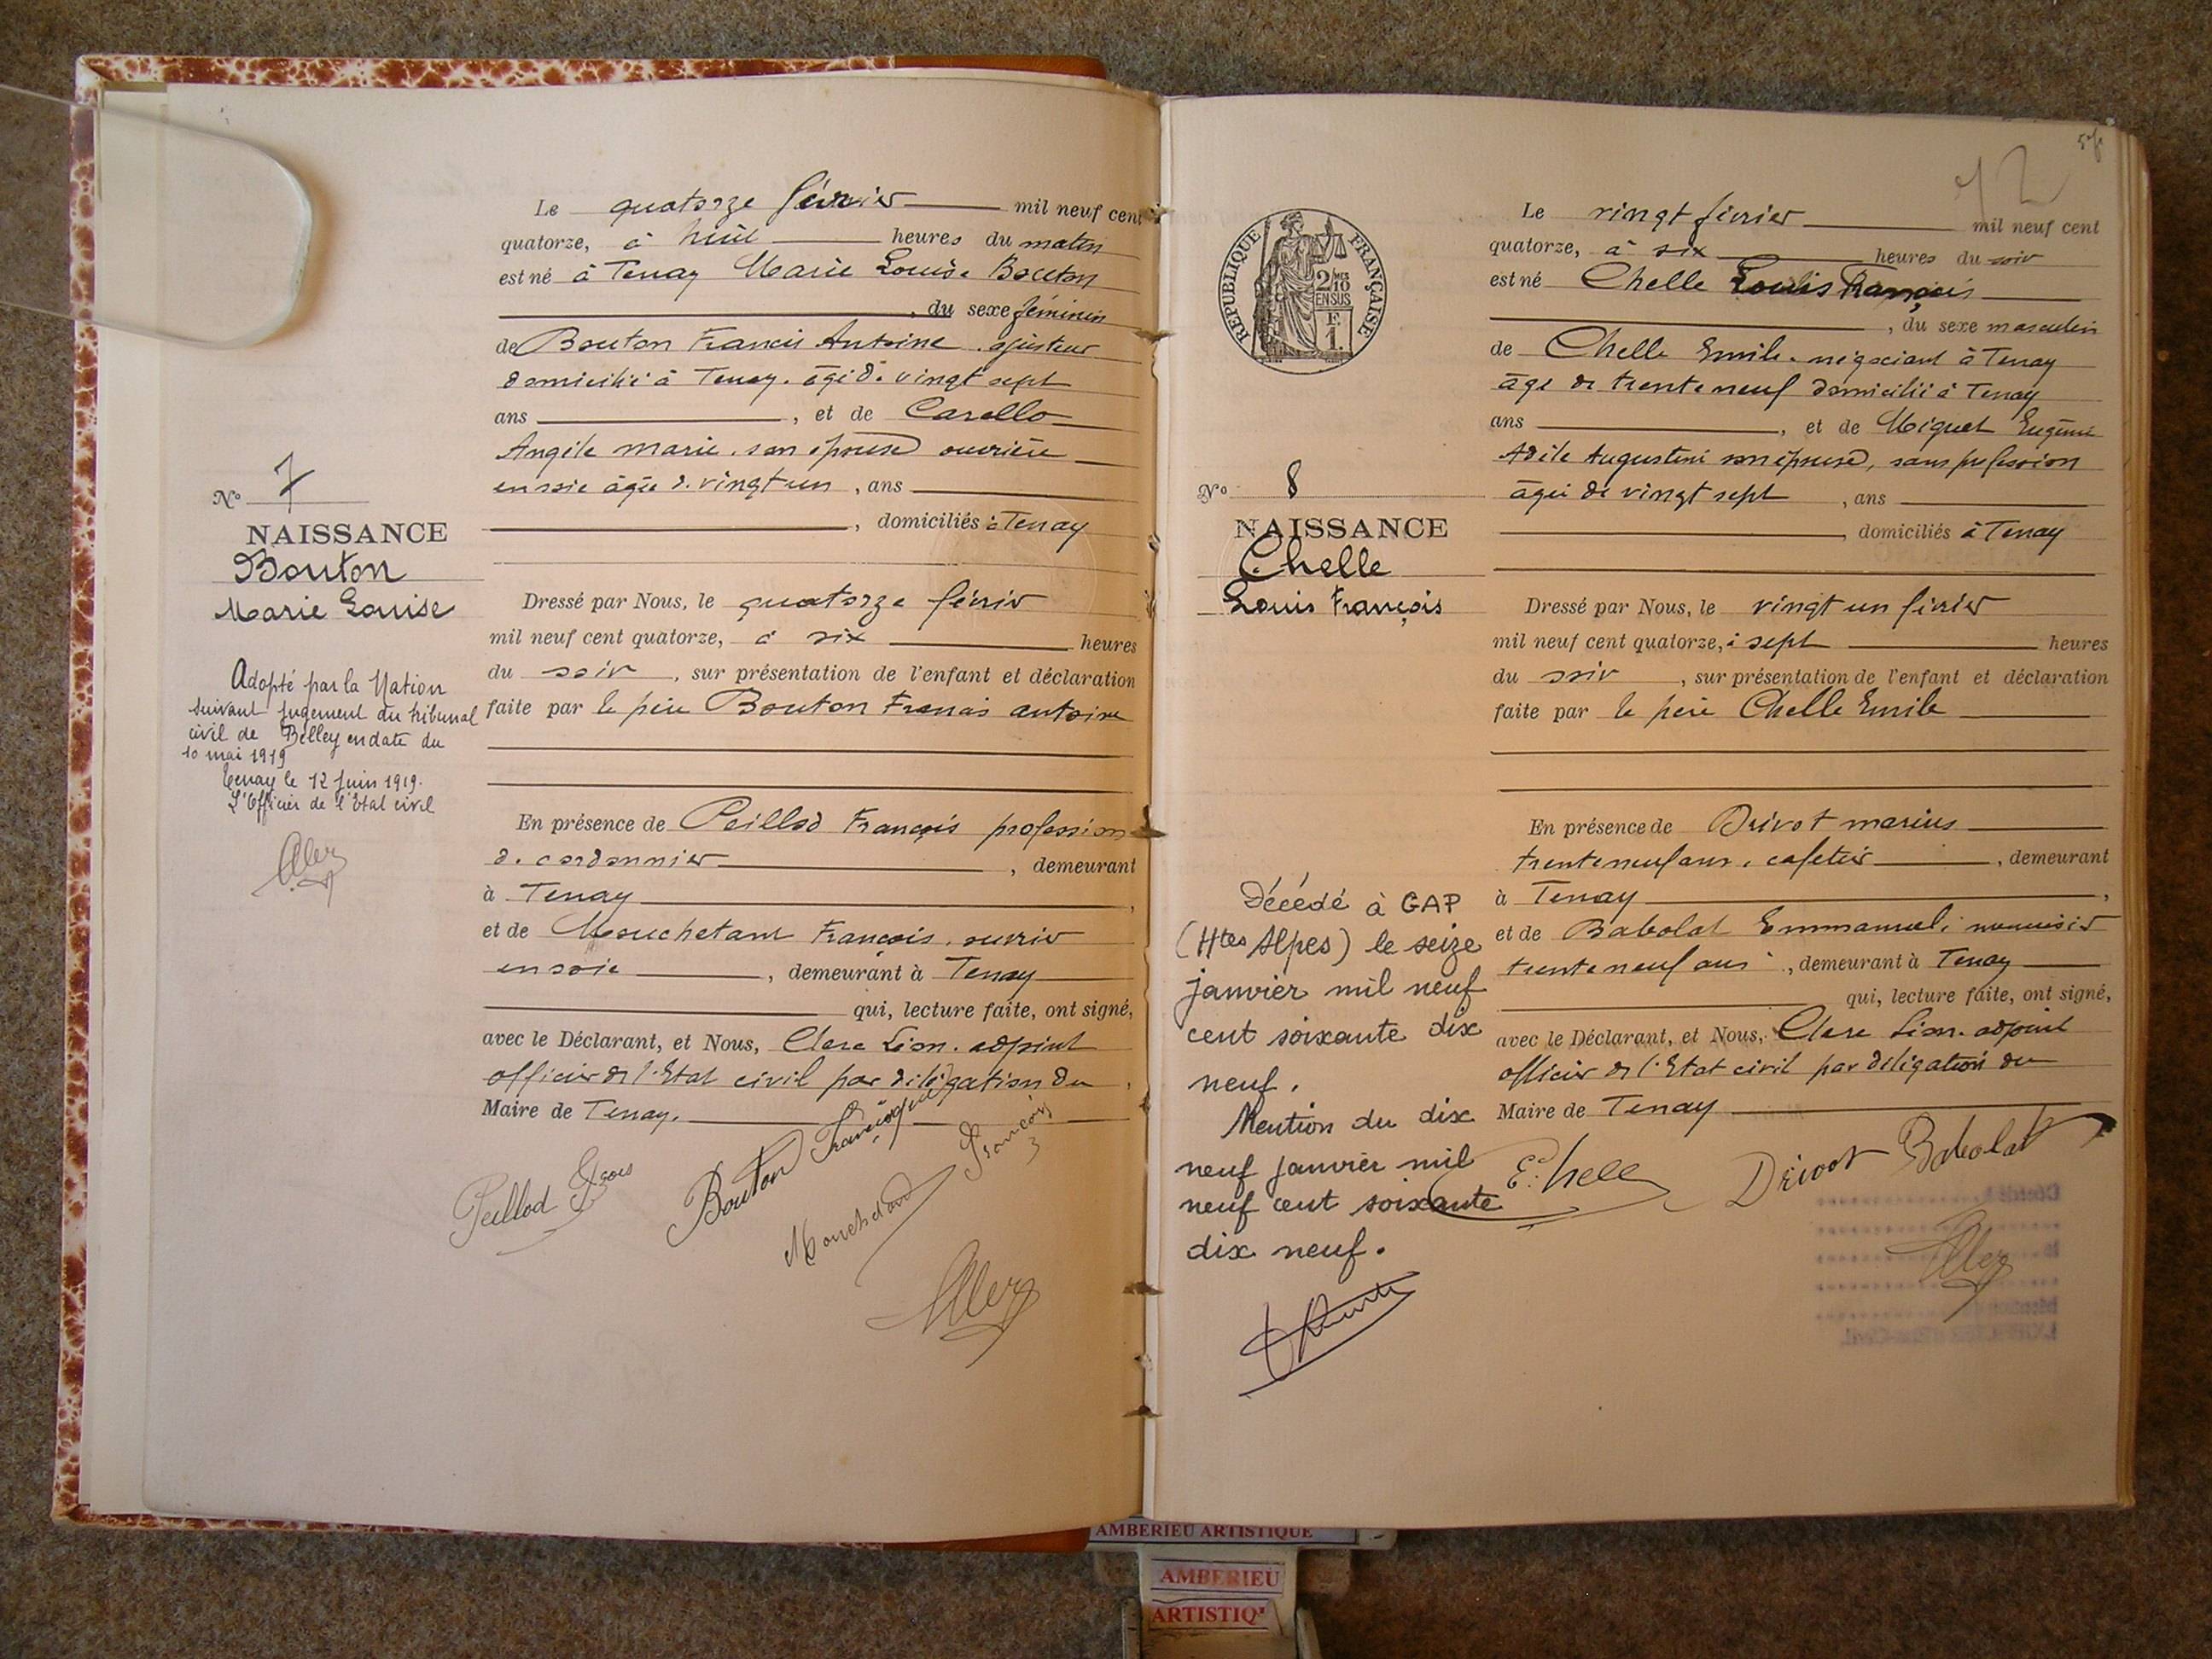 Le quatorze février mil neuf cent
quatorze, à huit heures du matin
est né à Tenay Marie Louise Bouton
, du sexe féminin
de Bouton Francis Antoine. ajusteur
domicilié à Tenay. âgé de vingt sept
ans , et de Carello
Angèle marie. son épouse ouvrière
en soie âgée de vingt un , ans
, domiciliés à Tenay
Nº 7
NAISSANCE
Bouton
Marie Louise
Adopté par la Nation
suivant jugement du tribunal
civil de Belley en date du
10 mai 1919
Tenay le 12 Juin 1919.
L'Officier de l'Etat civil
Dressé par Nous, le quatorze février
mil neuf cent quatorze, à six heures
du soir , sur présentation de l'enfant et déclaration
faite par le père Bouton Francis antoine
En présence de Peillod François profession
de cordonnier , demeurant
à Tenay ,
et de Mouchetant François. ouvrier
en soie , demeurant à Tenay
qui, lecture faite, ont signé,
avec le Déclarant, et Nous, Clerc Léon. adjoint
officier de l'Etat civil par délégation du
Maire de Tenay.
Peillod Fçois
Bouton
Mouchetant François
5f
12
REPUBLIQUE FRANÇAISE
2/10 MES
EN SUS
F.
1.
Le vingt février mil neuf cent
quatorze, à six heures du soir
est né Chelle Louis François
, du sexe masculin
de Chelle Emile. négociant à Tenay
âgé de trente neuf domicilié à Tenay
ans , et de Miguet Eugénie
Adèle Augustine son épouse, sans profession
âgée de vingt sept , ans
, domiciliés à Tenay
Nº 8
NAISSANCE
Chelle
Louis François
Dressé par Nous, le vingt un février
mil neuf cent quatorze, à sept heures
du soir , sur présentation de l'enfant et déclaration
faite par le père Chelle Emile
En présence de Drivot marius
trente neuf ans. cafetier , demeurant
à Tenay ,
et de Babolat Emmanuel. menuisier
trente neuf ans , demeurant à Tenay
qui, lecture faite, ont signé,
avec le Déclarant, et Nous, Clerc Léon. adjoint
officier de l'Etat civil par délégation du
Maire de Tenay
Décédé à GAP
(Htes Alpes) le seize
janvier mil neuf
cent soixante dix
neuf.
Mention du dix
neuf janvier mil
neuf cent soixante
dix neuf.
E. Chelle
Drivot
Babolat
AMBERIEU ARTISTIQUE
AMBERIEU
ARTISTIQ